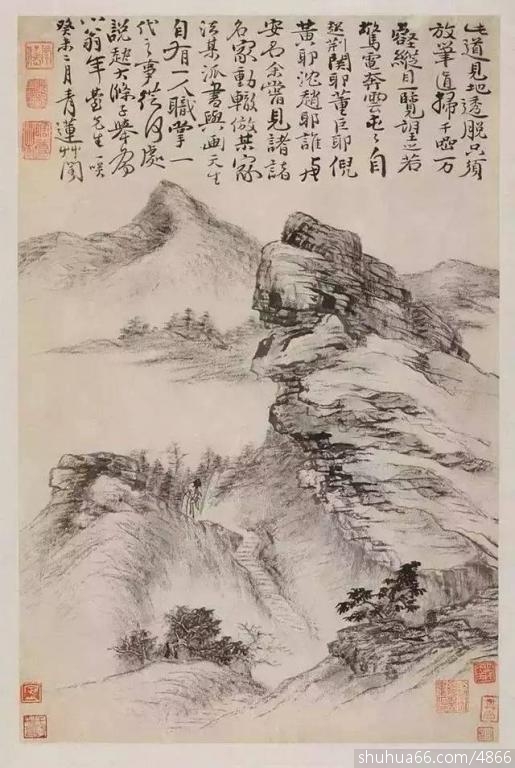 此道見地透脫只須
放筆直掃千巖万
壑縱目一覽望之若
驚電奔雲屯〻自
起荆關耶董巨耶倪
黃耶沈趙耶誰與
安名余嘗見諸諸
名家動輒倣某家
法某派書與畫天生
自有一人職掌一
代之事從何處
說起大滌子舉爲
翁年臺先生一笑
癸未二月青蓮艸閣
shuhua66.com/4866